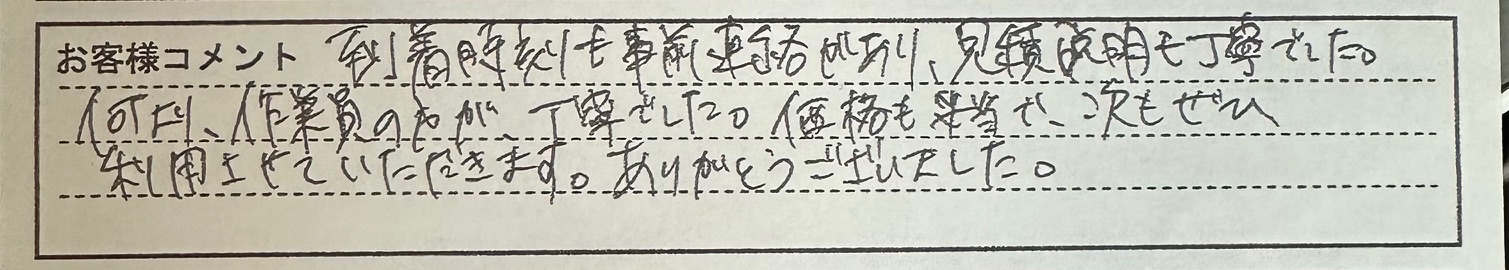 お客様コメント 到着時刻も事前連絡があり、見積説明も丁寧でした。
何より、作業員の方が、丁寧でした。価格も妥当で、次もぜひ
利用させていただきます。ありがとうございました。